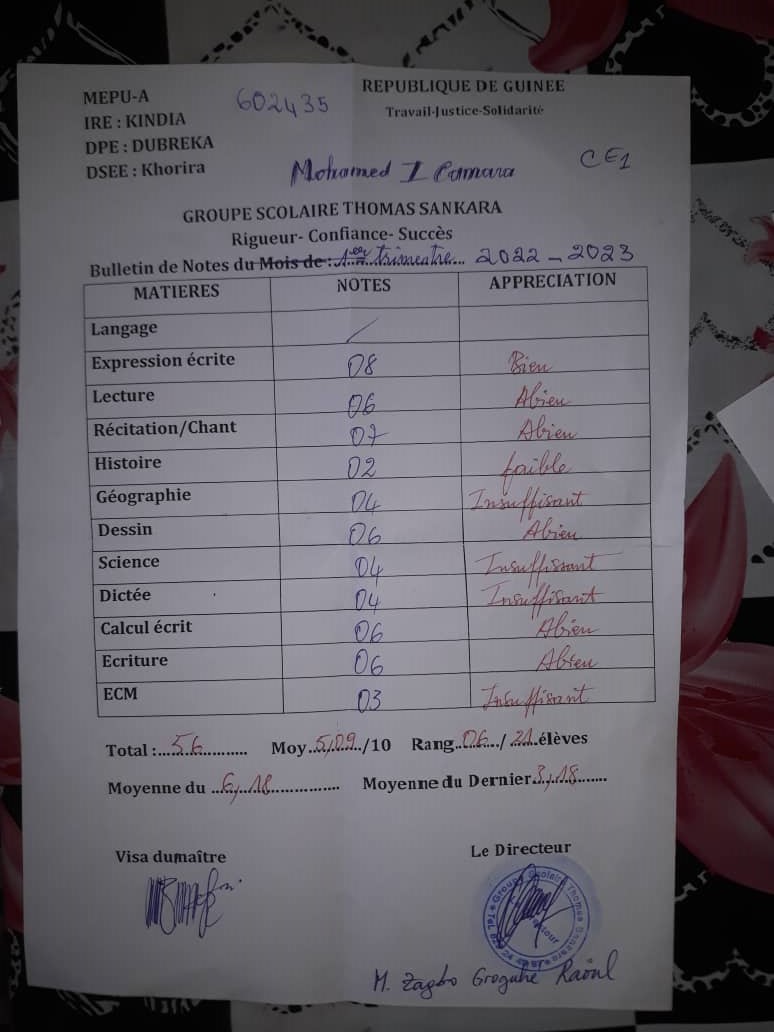 MEPU-A
602435
REPUBLIQUE DE GUINEE
IRE : KINDIA
Travail-Justice-Solidarité
DPE : DUBREKA
DSEE : Khorira
Mohamed I Camara
CE1
GROUPE SCOLAIRE THOMAS SANKARA
Rigueur- Confiance- Succès
Bulletin de Notes du Mois de :1er trimestre 2022-2023
MATIERES NOTES APPRECIATION
Langage /
Expression écrite 08 Bien
Lecture 06 Abien
Récitation/Chant 07 Abien
Histoire 02 faible
Géographie 04 Insuffisant
Dessin 06 Abien
Science 04 Insuffisant
Dictée 04 Insuffisant
Calcul écrit 06 Abien
Ecriture 06 Abien
ECM 03 Insuffisant
Total :56 Moy 5,09/10 Rang 06/21 élèves
Moyenne du 6,18 Moyenne du Dernier 3,18
Visa dumaître
Le Directeur
Groupe Scolaire Thomas Sankara
M. Zagbo Groguhé Raoul